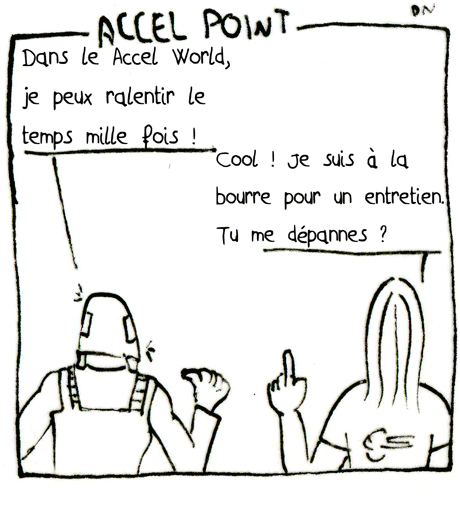 ACCEL POINT
DN
Dans le Accel World,
je peux ralentir le
temps mille fois !
Cool ! Je suis à la
bourre pour un entretien.
Tu me dépannes ?